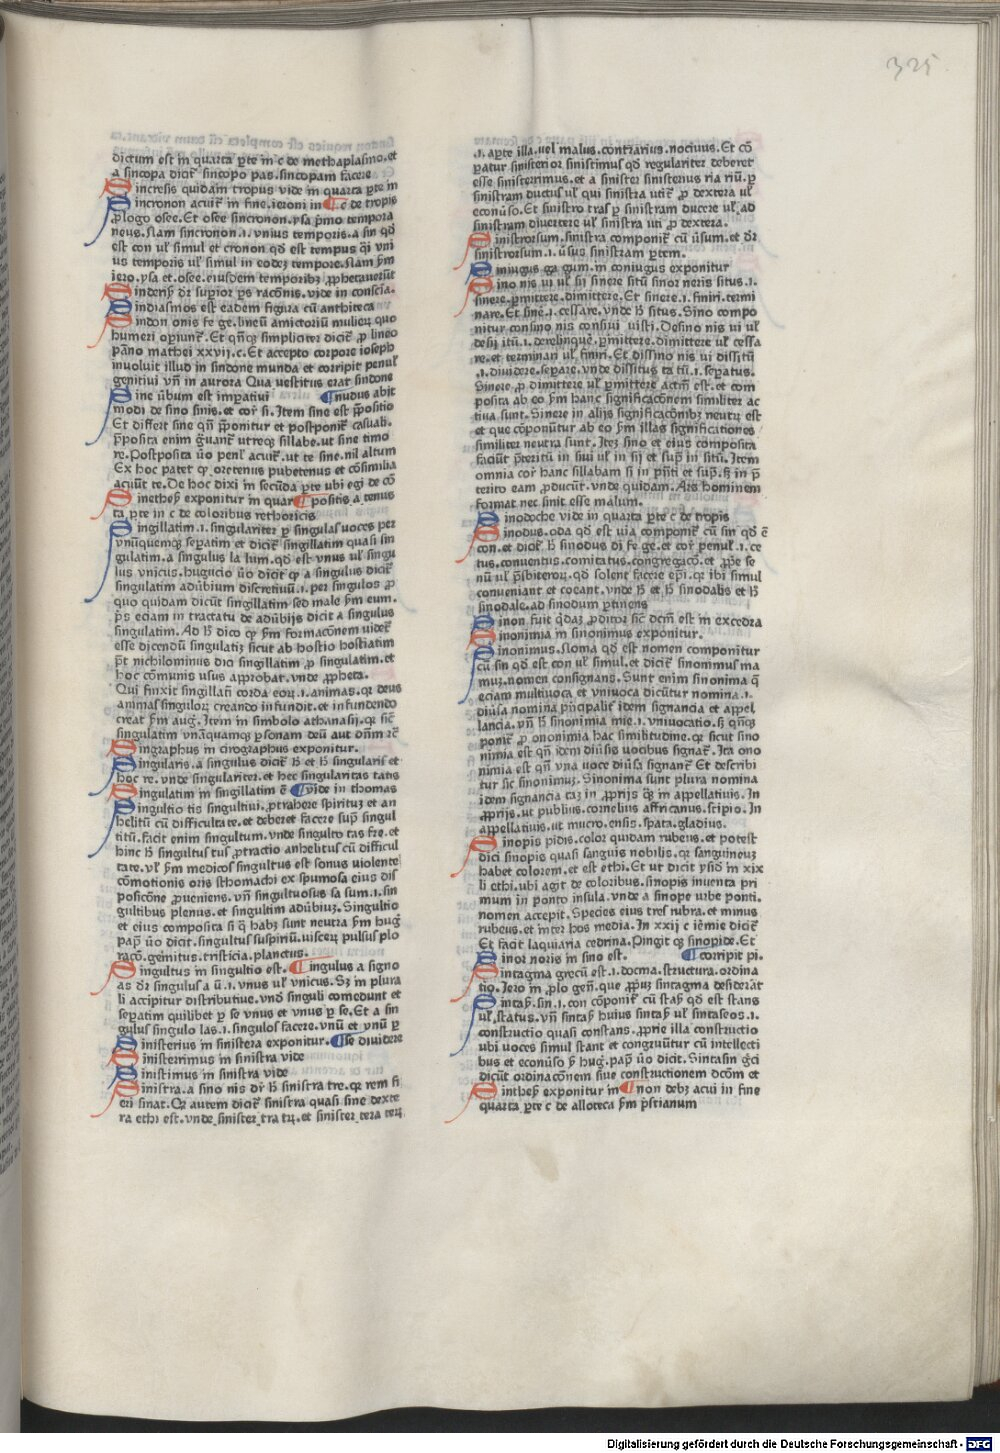 325
dictum est in quarta ꝑte in c de methaplasmo.et
a sincopa dicit᷑ sincopo pas.sincopam facere
Sincresis quidam tropus vide in quarta ꝑte in
Sincronon acuit᷑ in fine.ieroni in ¶ c de tropis
ꝓlogo osee. Et osee sincronon.ysa pͥmo tempora
neus.Nam sincronon .i. vnius temporis.a sin qđ
est con uł simul et cronon qđ est tempus qͣi vni
us temporis uł simul in eodeʒ tempore.Nam fm̄
iero.ysa et.osee.eiusdem temporibꝫ ꝓphetauerūt
Sinderis dr̄ supior ps racōnis.vide in conscia.
Sindiasmos est eadem figura cū anthiteca
Sindon onis fe ge.lineū amictoriū mulieꝝ quo
humeri opiunt᷑. Et qn̄qꝫ simpliciter dicit᷑ ꝓ lineo
pāno mathei xxvij.c. Et accepto corpore ioseph
inuoluit illud in sindone munda et corripit penuł
genitiui vn̄ in aurora Qua uestitus erat sindone
Sine ūbum est impatiui ¶ nudus abit
modi de sino sinis.et cor̄ si. Item sine est p̄positio
Et differt sine qn̄ p̄ponitur et postponit᷑ casuali.
p̄posita enim gͣuant᷑ utreqꝫ sillabe.ut sine timo
re.Postposita ūo penł acuit᷑.ut te sine.nil altum
Ex hoc patet ꝙ oretenus pubetenus et cōsimilia
acuūt te.De hoc dixi in secūda ꝑte ubi egi de cō
Sinetheſ exponitur in quar ¶ positis a tenus
ta ꝑte in c de coloribus rethoricis
Singillatim .i. singulariter ꝑ singulas uoces per
vnūquemqꝫ sepatim et dicit᷑ singillatim quasi sin
gulatim.a singulus la lum.qđ est vnus uł singu
lus vnicus.hugucio ūo dicit ꝙ a singulus dicit᷑
singulatim adūbium discretiuū .i. per singulos ꝓ
quo quidam dicūt singillatim sed male fm̄ eum.
p̄s eciam in tractatu de adūbijs dicit a singulus
singulatim. Ad ħ dico ꝙ fm̄ formacōnem uidet᷑
esse dicendū singulatiʒ sicut ab hostio hostiatim
pt̄ nichilominus dici singillatim ꝓ singulatim.et
hoc cōmunis usus approbat.vnde ꝓpheta.
Qui finxit singillati᷑ corda eoꝝ .i. animas.qꝛ deus
animas singuloꝝ creando infundit.et infundendo
creat fm̄ aug̉. Item in simbolo athanasij.qꝛ sic᷑
singulatim vnāquamqꝫ ꝑsonam deū aut dn̄m ꝛc̄
Singraphus in cirographus exponitur.
Singularis.a singulus dicit᷑ ħ et ħ singularis et
hoc re.vnde singulariter.et hec singularitas tatis
Singulatim in singillatim ē ¶ vide in thomas
Singultio tis singultiui.ꝓtrahere spirituʒ et an
helitū cū difficultate.et deberet facere sup̄ singul
titū.facit enim singultum.vnde singulto tas fre.et
hinc ħ singultus tus ꝓtractio anhelitus cū difficul
tate.vł fm̄ medicos singultus est sonus uiolente
cōmotionis oris sthomachi ex spumosa eius dis
posicōne ꝓueniens.vn̄ singultuosus sa sum .i. sin
gultibus plenus.et singultim adūbiuʒ. Singultio
et eius composita si q̄ habʒ sunt neutra fm̄ hug̉
pap̄ ūo dicit.singultus suspiriū.visceꝝ pulsus plo
racō.gemitus.tristicia.planctus.
Singultus in singultio est. ¶ Singulus a signo
as dr̄ singulus a ū .i. vnus uł vnicus. Sʒ in plura
li accipitur distributiue.vnđ singuli comedunt et
sepatim quilibet ꝑ se vnus et vnus ꝑ se. Et a sin
gulus singulo las .i. singulos facere.vnū et vnū ꝑ
Sinisterius in sinistera exponitur. ¶ se diuidere
Sinisterrimus in sinistra vide
Sinistimus in sinistra vide
Sinistra.a sino nis dr̄ ħ sinistra tre.qꝛ rem fi
eri sinat. Qꝛ autem dicit᷑ sinistra quasi sine dexte
ra ethi est.vnde sinister tra tꝝ.et sinister tera terꝝ
.i. aꝑte illa.uel malus.contrarius.nociuus. Et cō
ꝑatur sinisterior sinistimus qđ regulariter deberet
esse sinisterrimus.et a sinister sinisterius ria riū.ꝑ
sinistram ductus uł qui sinistra utit᷑ ꝓ dextera uł
econūso. Et sinistro tras ꝑ sinistram ducere uł.ad
sinistram diuertere uł sinistra uti ꝓ dextera.
Sinistrorsum.sinistra componit᷑ cū ūsum.et dr̄
sinistrorsum .i. ūsus sinistram ꝑtem.
Siniugus ga gum.in coniugus exponitur
Sino nis ui uł sij sinere sitū sinor neris situs .i.
sinere.ꝑmittere.dimittere. Et sinere .i. finiri.termi
nare. Et sine .i. cessare.vnde ħ situs. Sino compo
nitur consino nis consiui uisti. Desino nis ui uł
desij itū .i. derelinque.ꝑmittere.dimittere uł cessa
re.et terminari uł finiri. Et dissino nis ui dissitū
.i. diuidere.separe.vnde dissitus ta tū .i. sepatus.
Sinere ꝓ dimittere uł ꝑmittere actm̄ est.et com
posita ab eo fm̄ hanc significacōnem similiter ac
tiua sunt. Sinere in alijs significacōnibꝫ neutꝝ est
et que cōponūtur ab eo fm̄ illas significationes
similiter neutra sunt. Iteʒ sino et eius composita
faciūt p̄teritū in siui uł in sij et sup̄ in situ. Item
omnia cor̄ hanc sillabam si in pn̄ti et sup̄.sʒ in p̄
terito eam ꝓducūt.vnde quidam. Ars hominem
format nec sinit esse malum.
Sinodoche vide in quarta ꝑte c de tropis
Sinodus.oda qđ est uia componit᷑ cū sin qđ ē
con.et dicit᷑ ħ sinodus di fe ge.et cor̄ penuł .i. ce
tus.conuentus.comitatus.congregacō.et ꝓpͥe se
nū uł p̄sbiteroꝝ.qđ solent facere epī.qꝛ ibi simul
conueniant et coeant.vnde ħ et ħ sinodalis et ħ
sinodale.ad sinodum ꝑtinens
Sinon fuit qͥdaʒ ꝓditor sic dcm̄ est in excedra
Sinonimia in sinonimus exponitur.
Sinonimus. Noma qđ est nomen componitur
cū sin qđ est con uł simul.et dicit᷑ sinonimus ma
muʒ.nomen consignans. Sunt enim sinonima q̄
eciam multiuoca et vniuoca dicūtur nomina .i.
diūsa nomina pͥncipalit᷑ idem signancia et appel
lancia.vn̄ ħ sinonimia mie .i. vniuocatio.sʒ qn̄qꝫ
ponit᷑ ꝓ ononimia hac similitudine.qꝛ sicut sino
nimia est qn̄ idem diūsis uocibus signat᷑. Ita ono
nimia est qn̄ vna uoce diūsa signant᷑ Et describi
tur sic sinonimuʒ. Sinonima sunt plura nomina
idem signancia taʒ in ꝓprijs qͣʒ in appellatiuis. In
ꝓprijs.ut publius.cornelius affricanus.scipio. In
appellatiuis.ut mucro.ensis.spata.gladius.
Sinopis pidis.color quidam rubeus.et potest
dici sinopis quasi sanguis nobilis.qꝛ sanguineuʒ
habet colorem.et est ethi. Et ut dicit ysiđ in xix
li ethi.ubi agit de coloribus.sinopis inuenta pri
mum in ponto insula.vnde a sinope urbe ponti.
nomen accepit. Species eius tres rubra.et minus
rubeus.et inter hos media. In xxij c iēmie dicit᷑
Et facit laquiaria cedrina. Pingit qꝫ sinopide. Et
Sinor noris in sino est. ¶ corripit pi.
Sintagma grecū est .i. docma.structura.ordina
tio. Iero in ꝓlo gen̄.que ꝓpͥuʒ sintagma desiderāt
Sintaſ.sin .i. con cōponit᷑ cū staſ qđ est stans
uł.status.vn̄ sintaſ huius sintaſ uł sintaseos .i.
constructio quasi constans.ꝓprie illa constructio
ubi uoces simul stant et congruūtur cū intellecti
bus et econūso ꝑ hug̉.pap̄ ūo dicit. Sintasin gͣci
dicūt ordinacōnem siue constructionem dcōm et
Sintheſ exponitur in ¶ non debʒ acui in fine
quarta ꝑte c de alloteca fm̄ pͥscianum
Digitalisierung gefördert durch die Deutsche Forschungsgemeinschaft - DFG